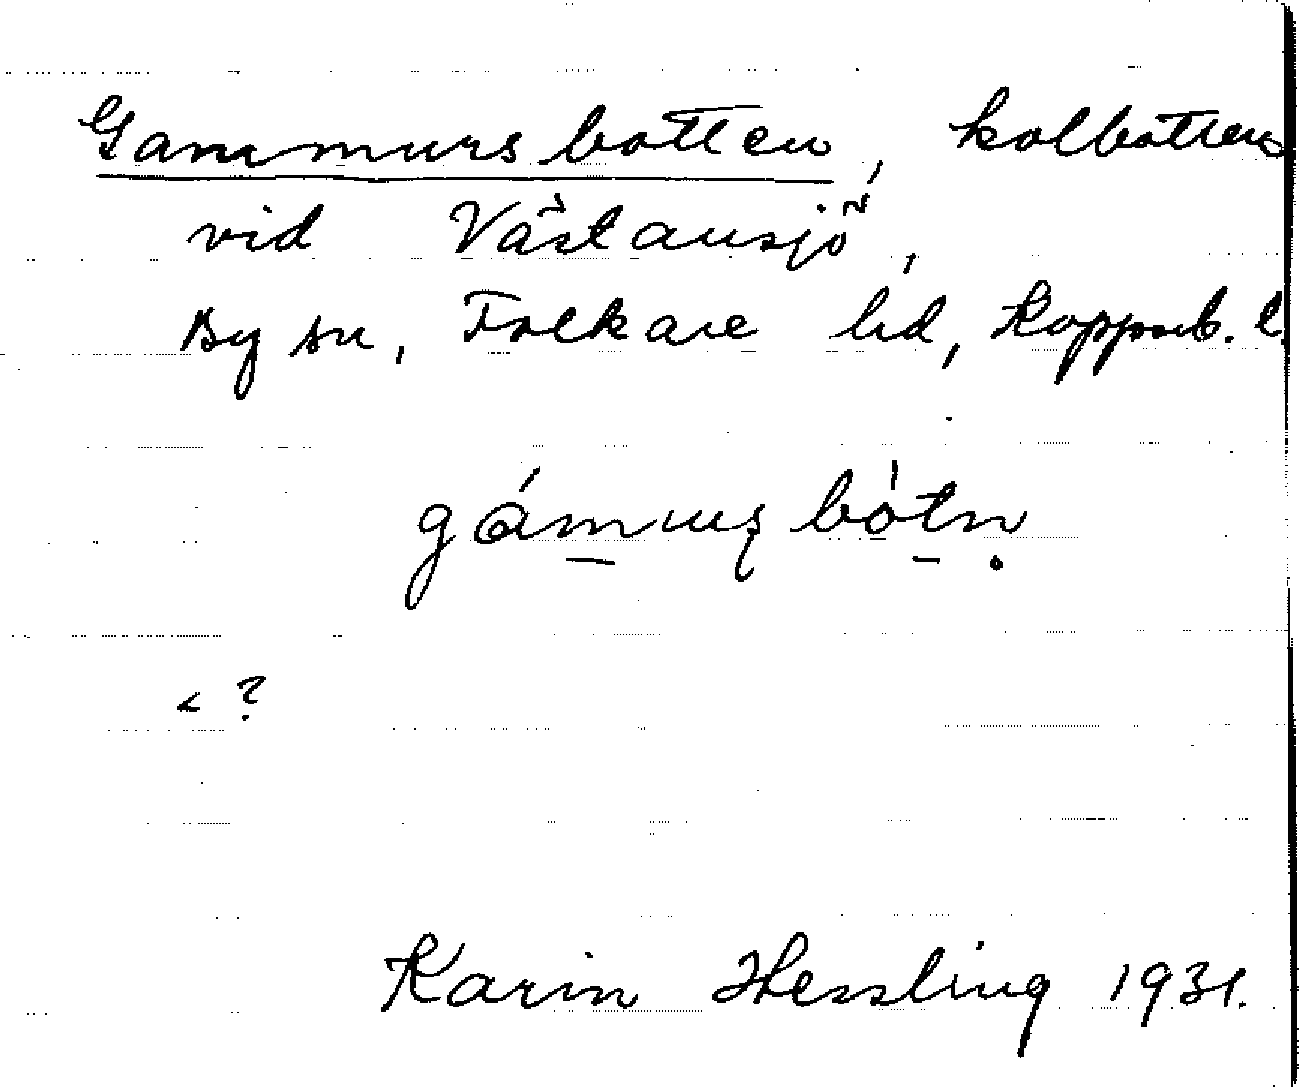 Gammursbotten, kolbotten
vid Västansjö,
By sn, Folkare hd, Kopparb. l.
gámmuʂbòtn̥
< ?
Karin Hessling 1931.